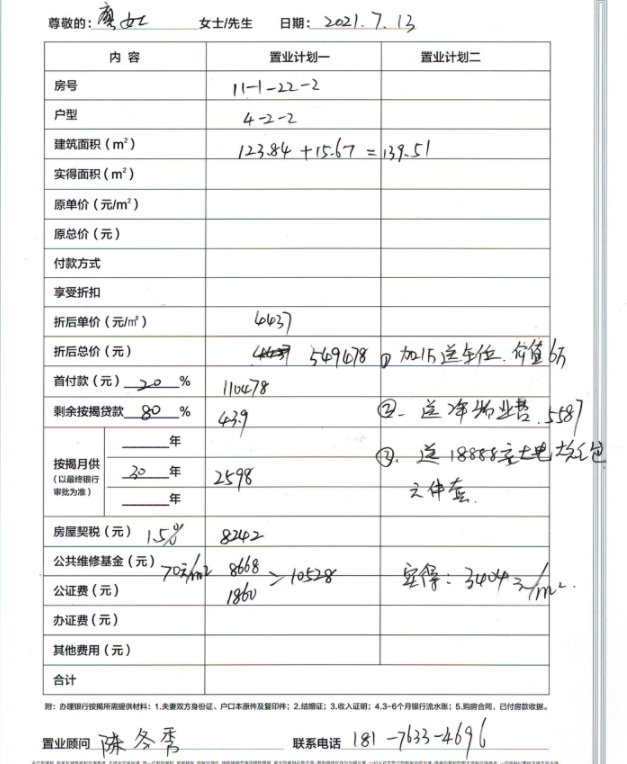 尊敬的：廖女士 女士/先生 日期：2021.7.13
内 容 置业计划一 置业计划二
房号 11-1-22-2
户型 4-2-2
建筑面积（m²） 123.84 +15.67 =139.51
实得面积（m²）
原单价（元/m²）
原总价（元）
付款方式
享受折扣
折后单价（元/㎡） 4437
折后总价（元） 549478 ① 加1万送车位.价值6万
首付款（元）20 % 110478
剩余按揭贷款 80 % 43.9 ②. 送2年物业费.5587
年
按揭月供（以最终银行审批为准） 30 年 2598 ③. 送18888家电大礼包
年 三件套.
房屋契税（元） 1.5% 8242
公共维修基金（元）70元/m² 8668 >10528 实得：3404元/m².
公证费（元） 1860
办证费（元）
其他费用（元）
合计
附：办理银行按揭所需提供材料：1.夫妻双方身份证、户口本原件及复印件；2.结婚证；3.收入证明；4.3-6个月银行流水账；5.购房合同、已付房款收据。
置业顾问 陈冬秀 联系电话 181-7633-4696